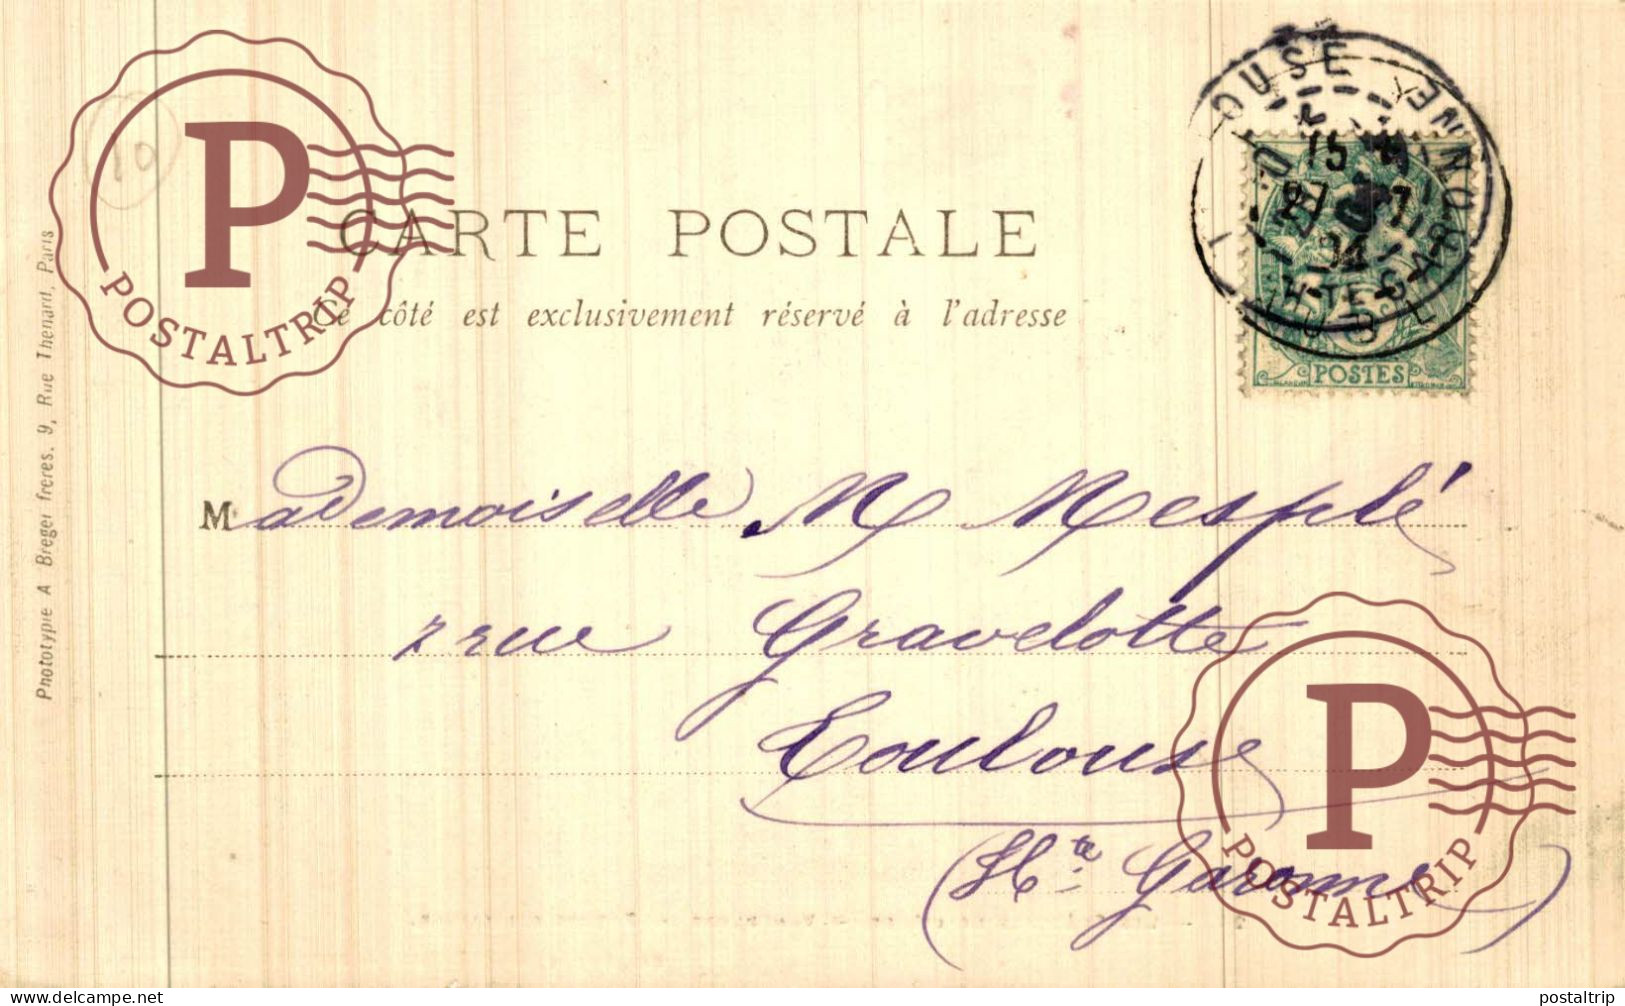 CARTE POSTALE
Ce côté est exclusivement réservé à l'adresse
Mademoiselle M Mesplé
rue Gravelotte
Toulouse
(Hte Garonne)
Phototypie A Breger freres. 9, Rue Thenard, Paris
POSTES
15
27 7
04
HTE-GAR
P
POSTALTRIP
P
POSTALTRIP
10
www.delcampe.net
postaltrip